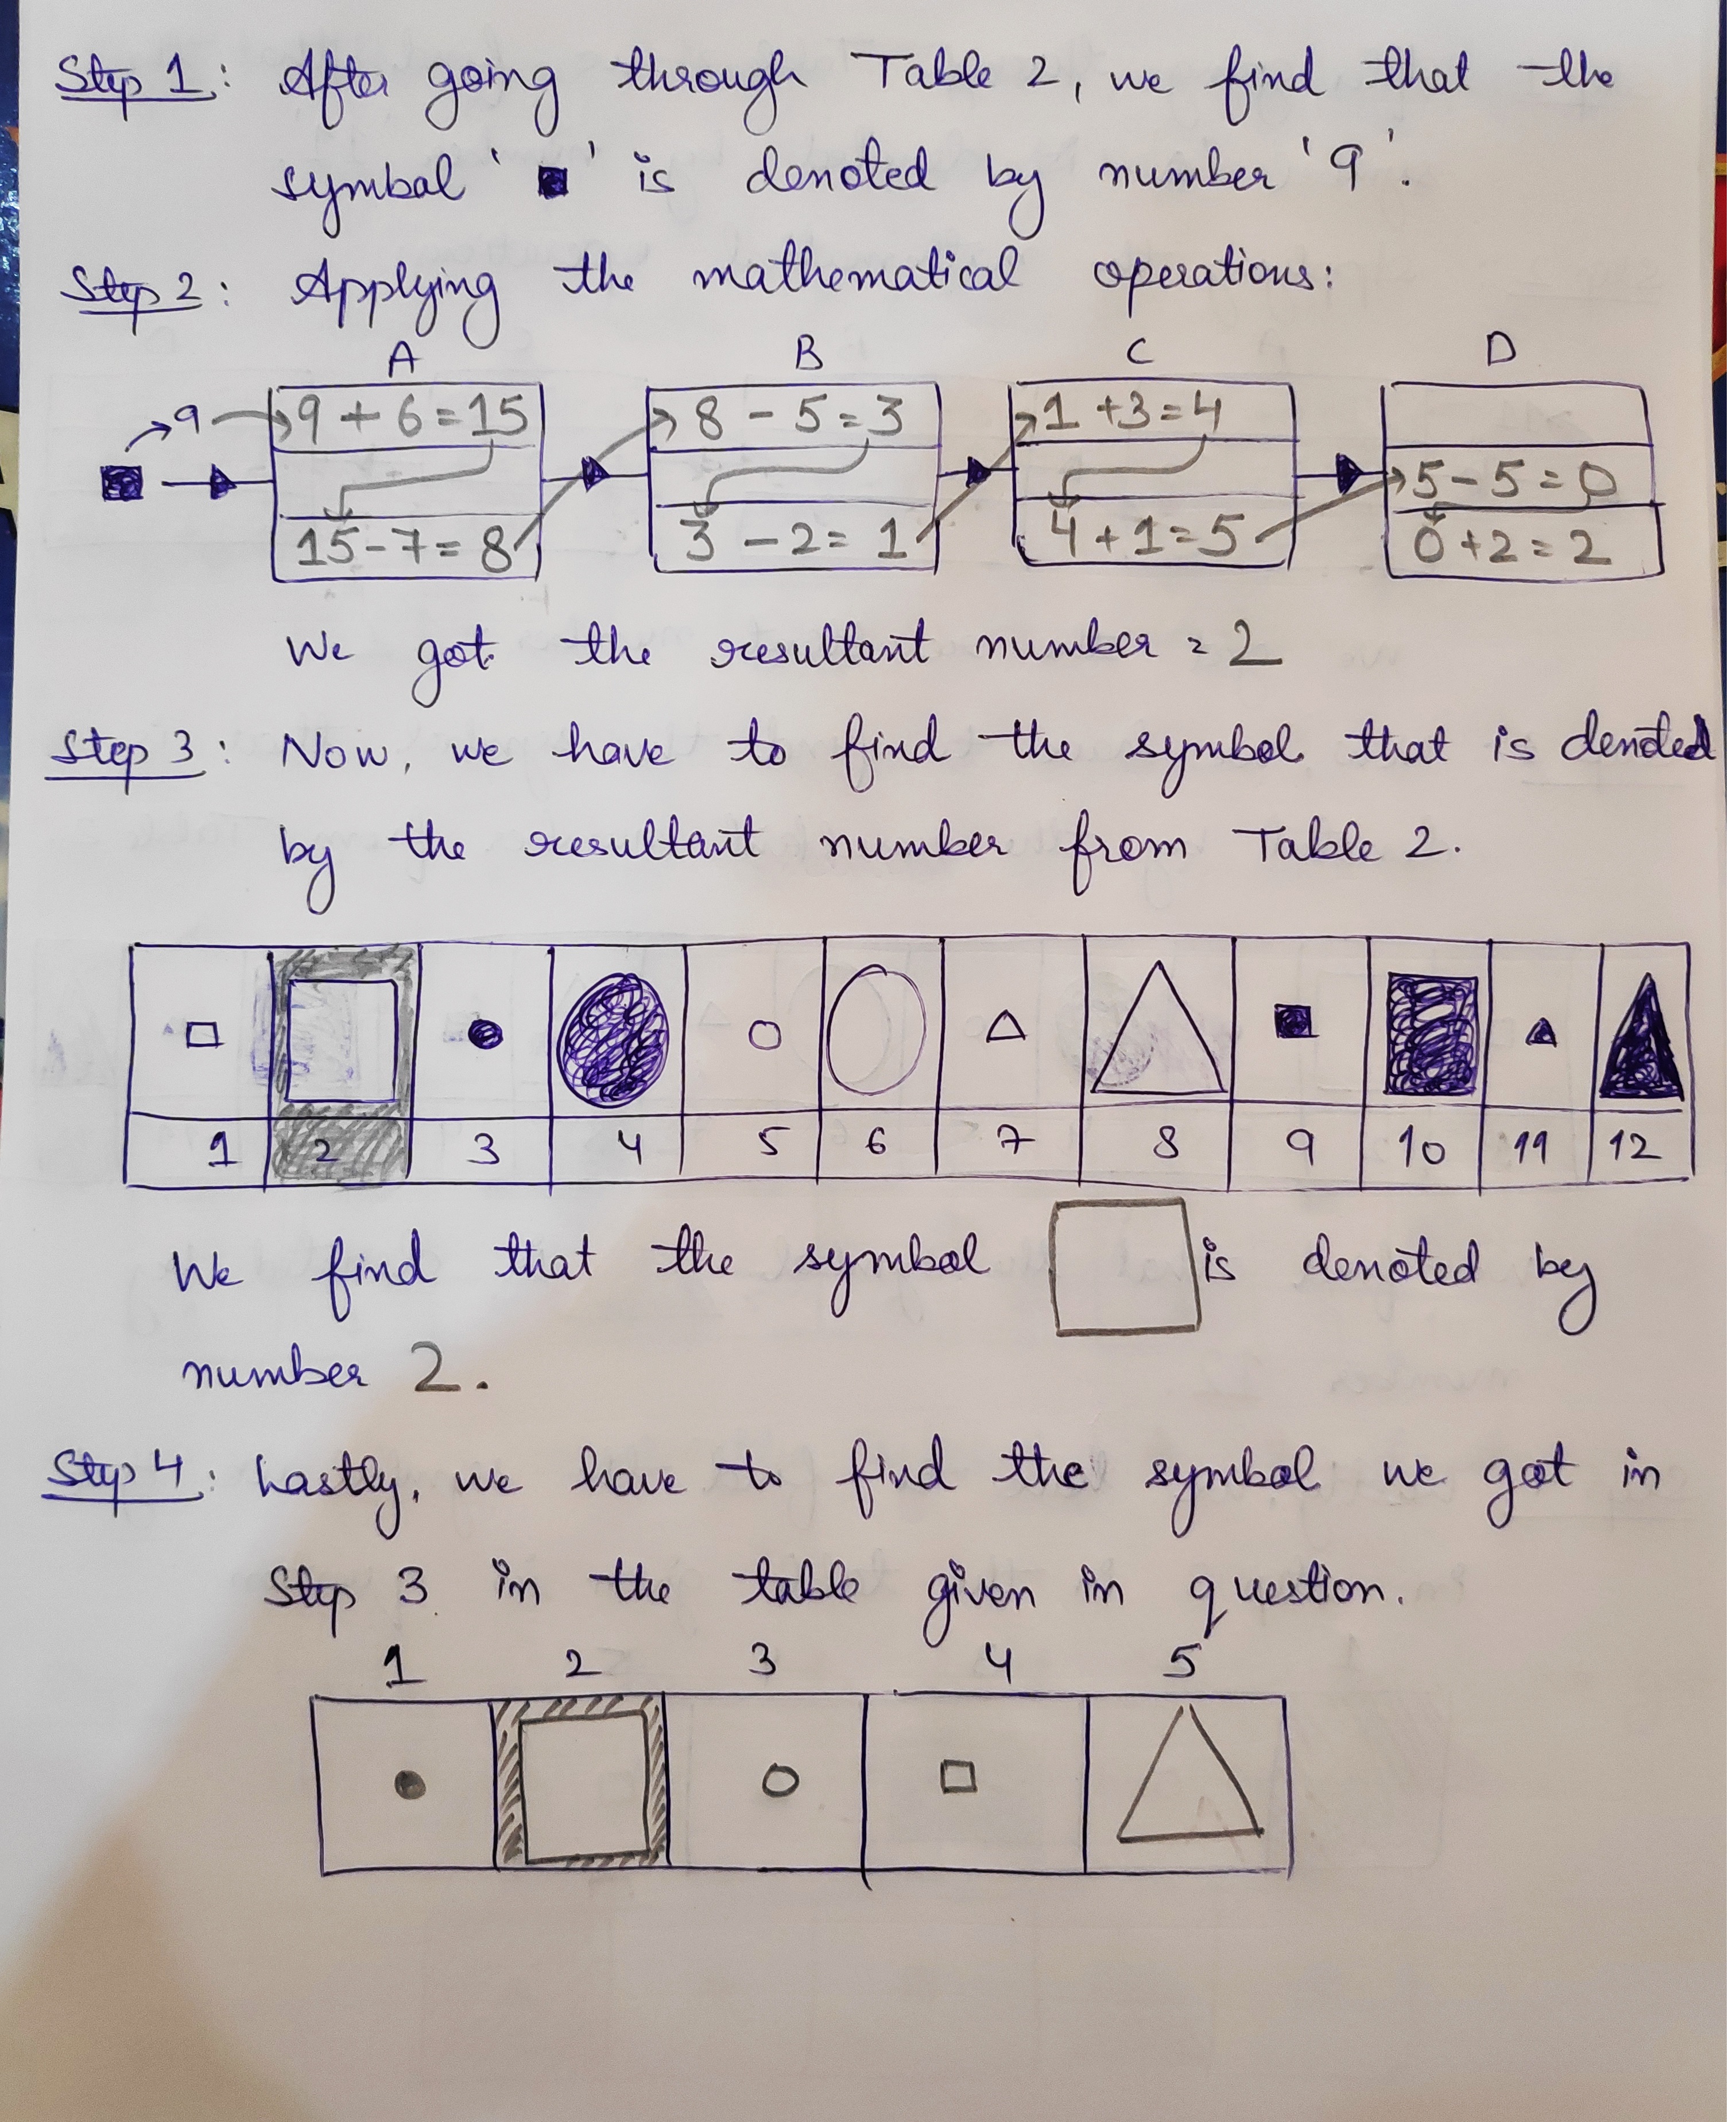 Step 1: After going through Table 2, we find that the
symbol '■' is denoted by number '9'.
Step 2: Applying the mathematical operations:
A B C D
9 9 + 6 = 15 8 - 5 = 3 1 + 3 = 4
5 - 5 = 0
15 - 7 = 8 3 - 2 = 1 4 + 1 = 5 0 + 2 = 2
We got the resultant number = 2
Step 3: Now, we have to find the symbol that is denoted
by the resultant number from Table 2.
1 2 3 4 5 6 7 8 9 10 11 12
We find that the symbol □ is denoted by
number 2.
Step 4: Lastly, we have to find the symbol we got in
Step 3 in the table given in question.
1 2 3 4 5